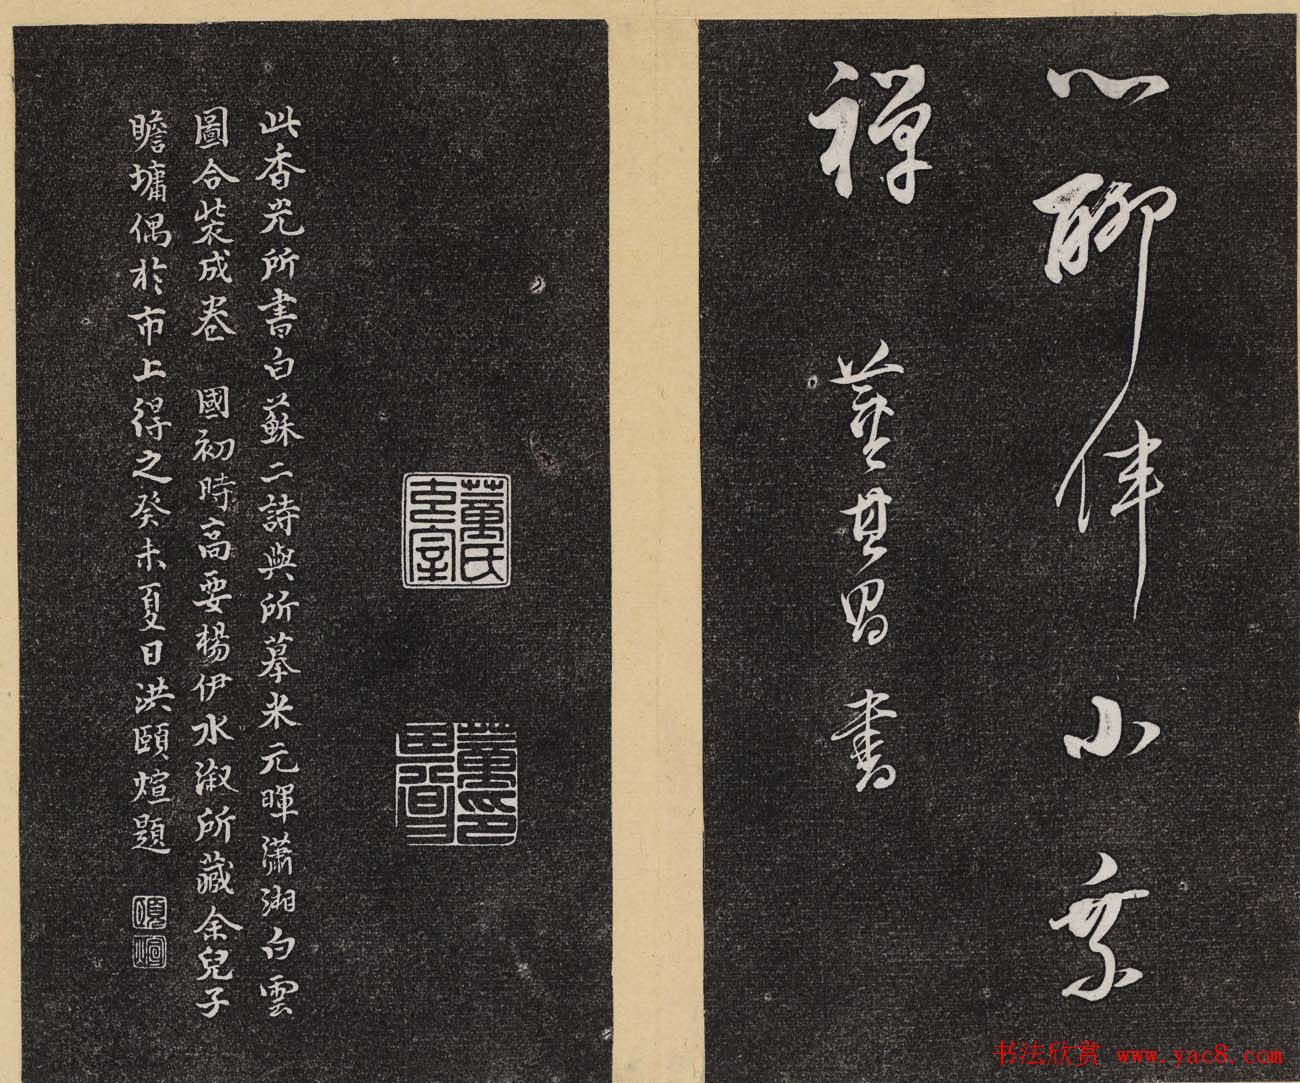 心聊伴小乘
禪 董其昌書
董氏玄宰
董其昌印
此香光所書白蘇二詩與所摹米元暉瀟湘白雲
圖合裝成卷 國初時高要楊伊水淑所藏余兒子
瞻墉偶於市上得之癸未夏日洪頤煊題
頤煊
书法欣赏 www.yac8.com